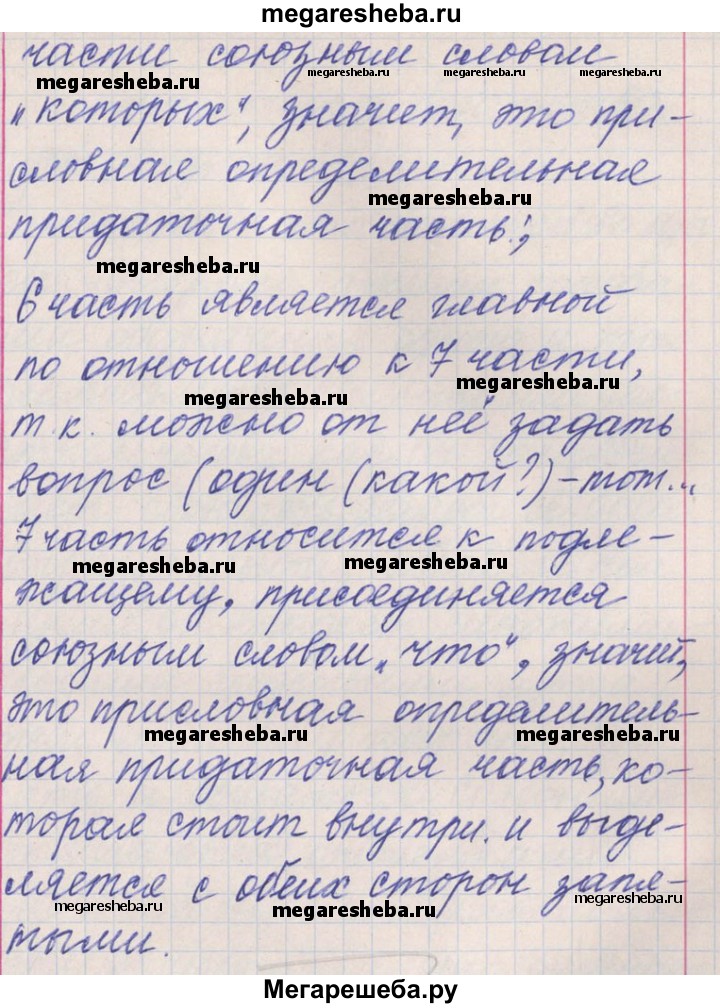 megaresheba.ru
части союзным словом
megaresheba.ru megaresheba.ru megaresheba.ru
„которых“, значит, это при-
словная определительная
megaresheba.ru
придаточная часть!;
megaresheba.ru
6 часть является главной
по отношению к 7 части,
megaresheba.ru megaresheba.ru
т.к. можно от неё задать
вопрос (один (какой?) – тот...
7 часть относится к подле-
megaresheba.ru megaresheba.ru
жащему, присоединяется
союзным словом „что“, значит,
это присловная определитель-
megaresheba.ru megaresheba.ru
ная придаточная часть, ко-
торая стоит внутри. и выде-
ляется с обеих сторон запя-
megaresheba.ru megaresheba.ru megaresheba.ru
тыми.
Мегарешеба.ру